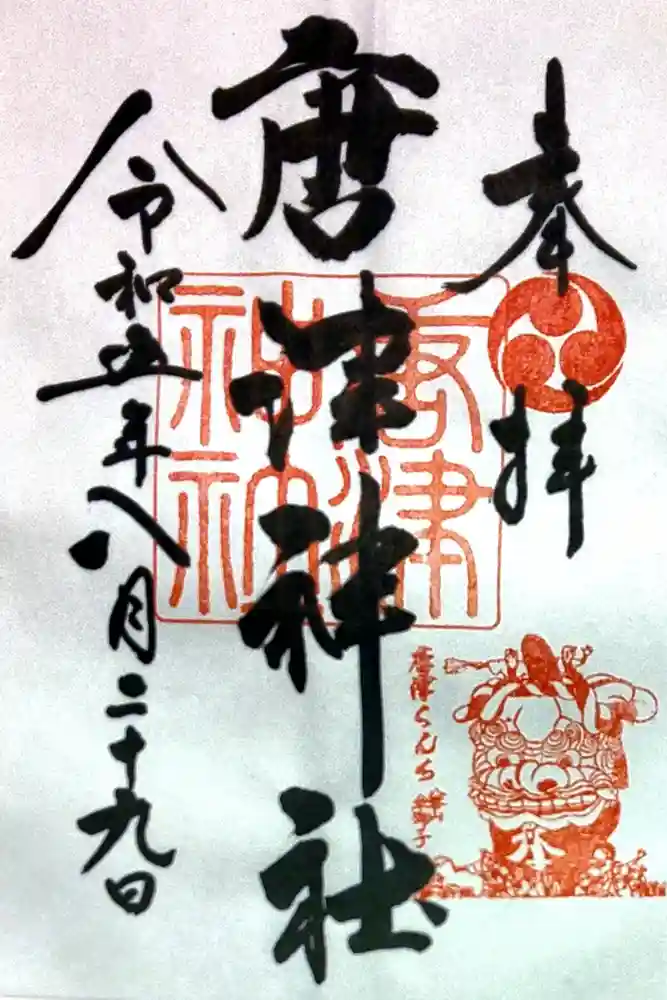 奉拝
唐津神社
唐津神社
唐津くんち
獅子
令和五年八月二十九日